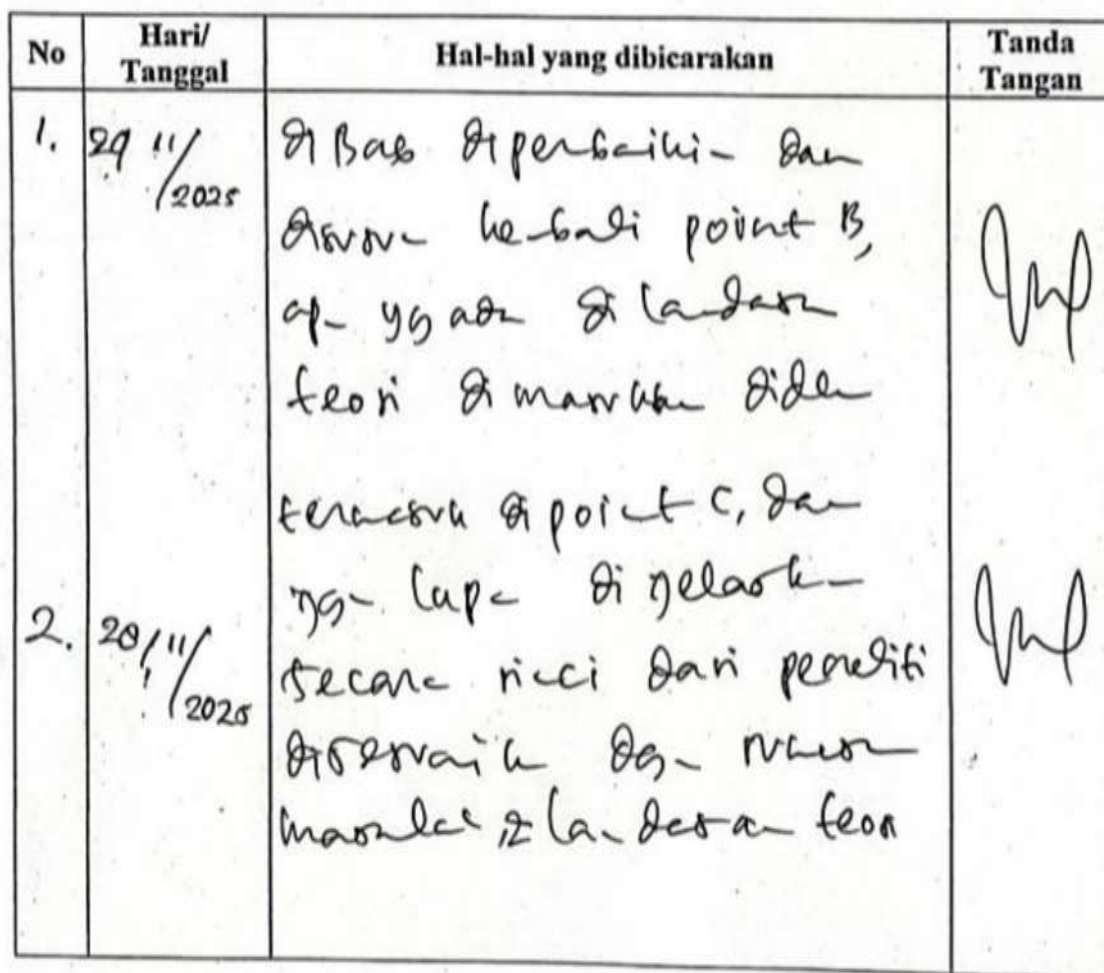 No Hari/ Tanggal Hal-hal yang dibicarakan Tanda Tangan
1. 29 11/2025 di Bab diperbaiki dan
disusun kembali point B,
apa yg ada di landasan
teori dimasukkan
di point C, dan
lupa dijelaskan
2. 28/11/2025 secara rinci dari peneliti
disesuaikan dgn rumusan
masalah & landasan teori